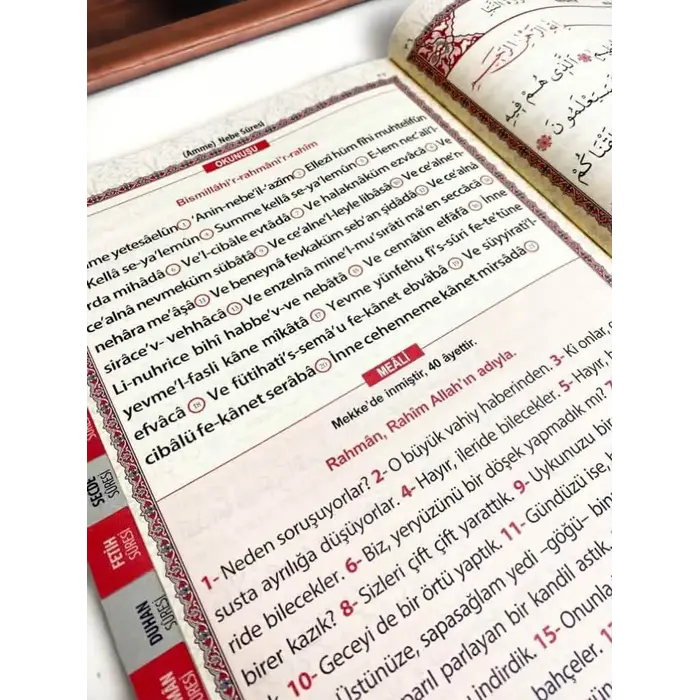 (Amme) Nebe Sûresi
OKUNUŞU
Bismillâhi'r-rahmâni'r-rahîm
yetesâelûn 1 'Anin-nebe'il-'azîm 2 Ellezî hüm fîhi muhtelifûn
Kellâ se-ya'lemûn 4 Summe kellâ se-ya'lemûn 5 E-lem nec'ali'l
mihâdâ 6 Ve'l-cibâle evtâdâ 7 Ve halaknâküm ezvâcâ 8 Ve
ce'alnâ nevmeküm sübâtâ 9 Ve ce'alne'l-leyle libâsâ 10 Ve ce'alne'n-
nehâra me'âşâ 11 Ve beneynâ fevkaküm seb'an şidâdâ 12 Ve ce'alnâ
sirâce'v- vehhâcâ 13 Ve enzelnâ mine'l-mu'sirâti mâ'en seccâcâ 14
Li-nuhrice bihî habbe'v-ve nebâtâ 15 Ve cennâtin elfâfâ 16 İnne
yevme'l-fasli kâne mîkâtâ 17 Yevme yünfehu fi's-sûri fe-te'tûne
efvâcâ 18 Ve fütihati's-semâ'u fe-kânet ebvâbâ 19 Ve süyyirati'l-
cibâlü fe-kânet serâbâ 20 İnne cehenneme kânet mirsâdâ 21
MEÂLİ
Mekke'de inmiştir. 40 âyettir.
Rahmân, Rahîm Allah'ın adıyla.
1- Neden soruşuyorlar? 2- O büyük vahiy haberinden. 3- Ki onlar,
susta ayrılığa düşüyorlar. 4- Hayır, ileride bilecekler. 5- Hayır,
ride bilecekler. 6- Biz, yeryüzünü bir döşek yapmadık mı?
birer kazık? 8- Sizleri çift çift yarattık. 9- Uykunuzu bir
10- Geceyi de bir örtü yaptık. 11- Gündüzü ise,
Üstünüze, sapasağlam yedi –göğü– bina
parıl parlayan bir kandil astık.
indirdik. 15- Onunla
bahçeler.
SECDE
SÛRESİ
FETİH
SÛRESİ
DUHAN
SÛRESİ
SÛRESİ
الَّذِي هُمْ فِيهِ